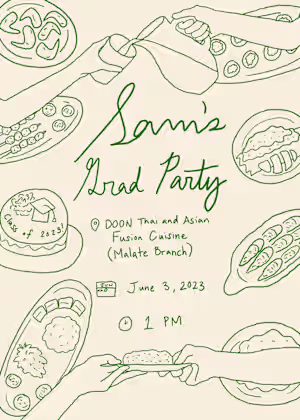 Sam's
Grad Party
DOON Thai and Asian
Fusion Cuisine
(Malate Branch)
Class of 2023!
SUN
June 3, 2023
1 PM